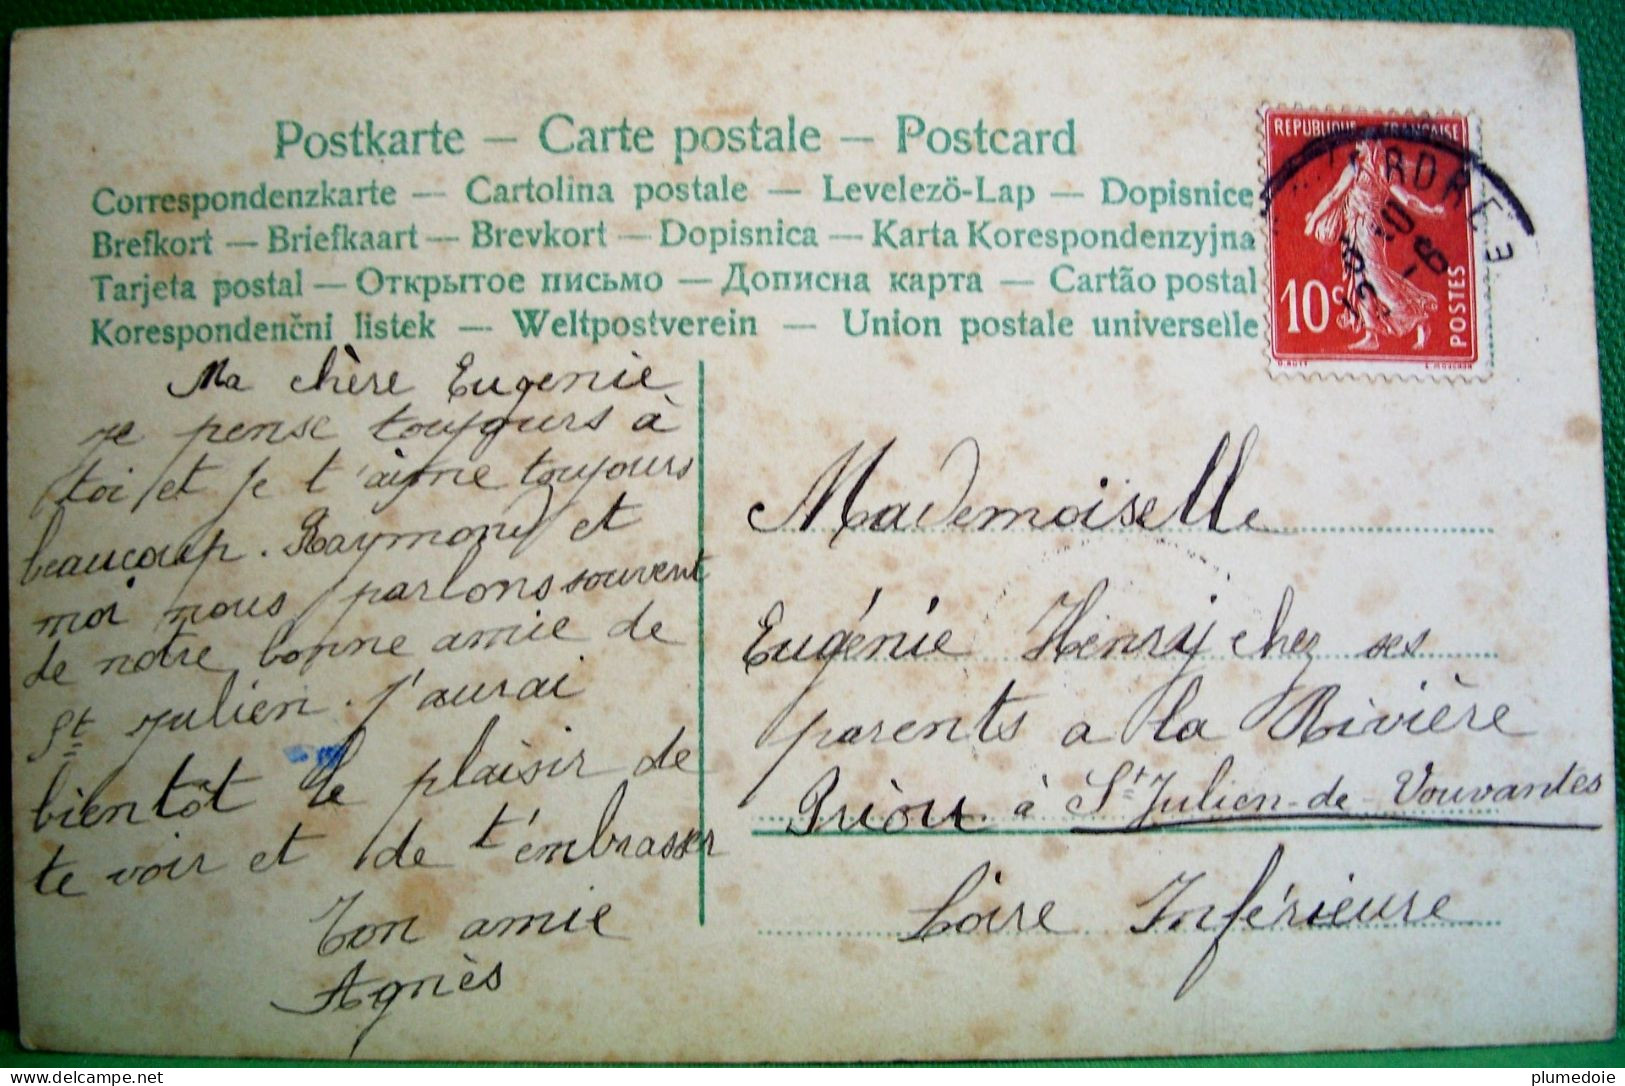 Postkarte – Carte postale – Postcard
Correspondenzkarte – Cartolina postale – Levelezö-Lap – Dopisnice
Brefkort – Briefkaart – Brevkort – Dopisnica – Karta Korespondenzyjna
Tarjeta postal – Открытое письмо – Дописна карта – Cartão postal
Korespondenčni listek – Weltpostverein – Union postale universelle
REPUBLIQUE FRANÇAISE
10c
POSTES
Ma chère Eugenie
je pense toujours à
toi et je t'aime toujours
beaucoup. Raymond et
moi nous parlons souvent
de notre bonne amie de
St Julien. J'aurai
bientôt le plaisir de
te voir et de t'embrasser
Ton amie
Agnès
Mademoiselle
Eugénie Henry chez ses
parents a la Rivière
Priou à St Julien-de-Vouvantes
Loire Inférieure
plumedoie